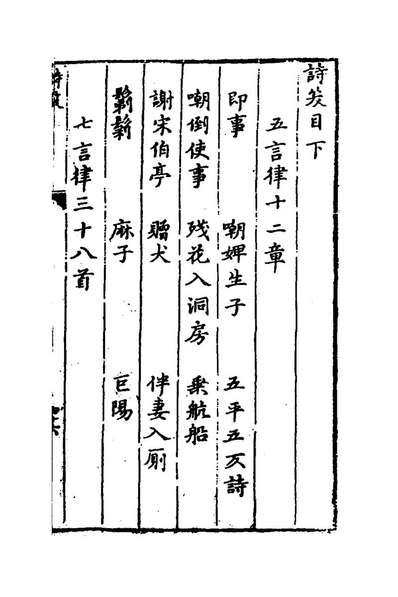 詩笑目下
五言律十二章
即事 嘲婢生子 五平五仄詩
嘲倒使事 残花入洞房 乗航船
謝宋伯亭 贈犬 伴妻入廁
麻子 巨陽
七言律三十八首